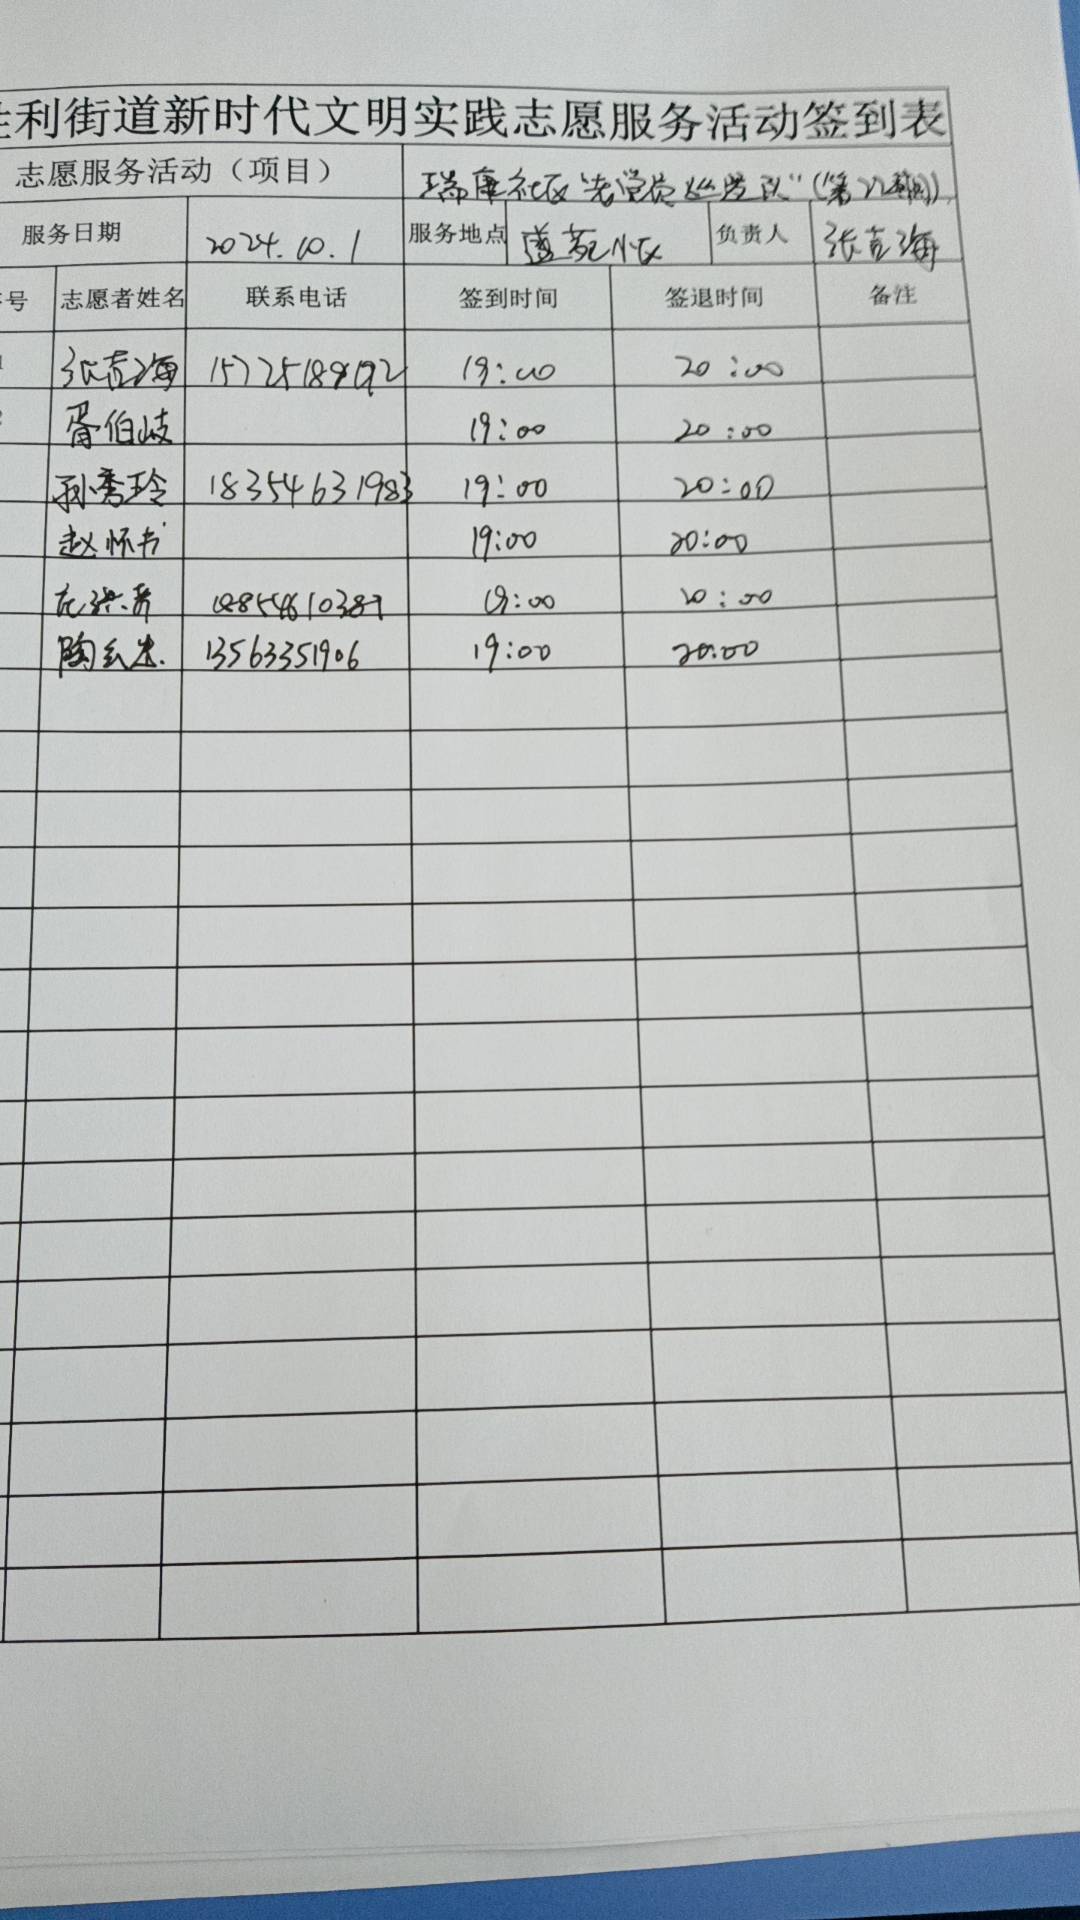 利街道新时代文明实践志愿服务活动签到表
志愿服务活动（项目） 瑞康社区"老党员巡逻队"（第22期）
服务日期 2024.10.1 服务地点 盛苑小区 负责人 张吉海
号 志愿者姓名 联系电话 签到时间 签退时间 备注
张吉海 19:00 20:00
胥伯岐 19:00 20:00
孙秀玲 18354631983 19:00 20:00
赵怀书 19:00 20:00
19:00 20:00
陶 13563351906 19:00 20:00